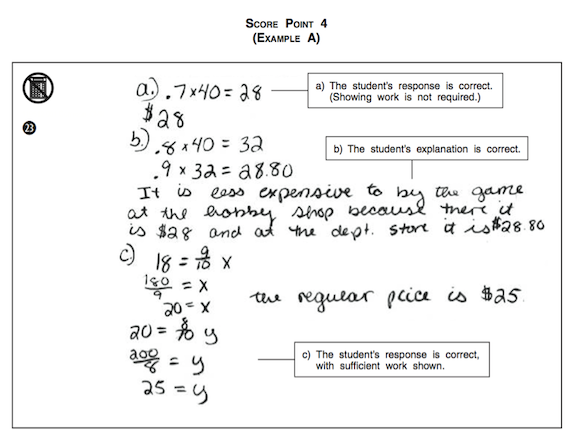 SCORE POINT 4
(EXAMPLE A)
23
a.) .7×40 = 28
$28
a) The student's response is correct.
(Showing work is not required.)
b.) .8×40 = 32
.9 × 32 = 28.80
b) The student's explanation is correct.
It is less expensive to by the game
at the hobby shop because there it
is $28 and at the dept. store it is $28.80
c) 18 = 9/10 x
180/9 = x
20 = x
the regular price is $25.
20 = 8/10 y
200/8 = y
25 = y
c) The student's response is correct,
with sufficient work shown.